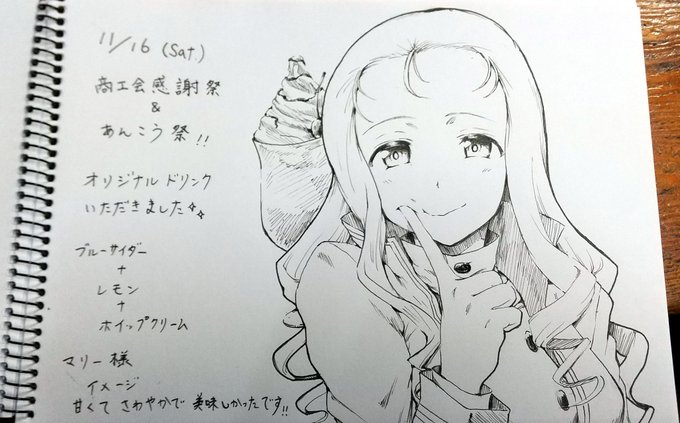 11/16 (Sat.)
商工会感謝祭
&
あんこう祭!!
オリジナルドリンク
いただきました✧✧
ブルーサイダー
+
レモン
+
ホイップクリーム
マリー様
イメージ
甘くてさわやかで美味しかったです!!